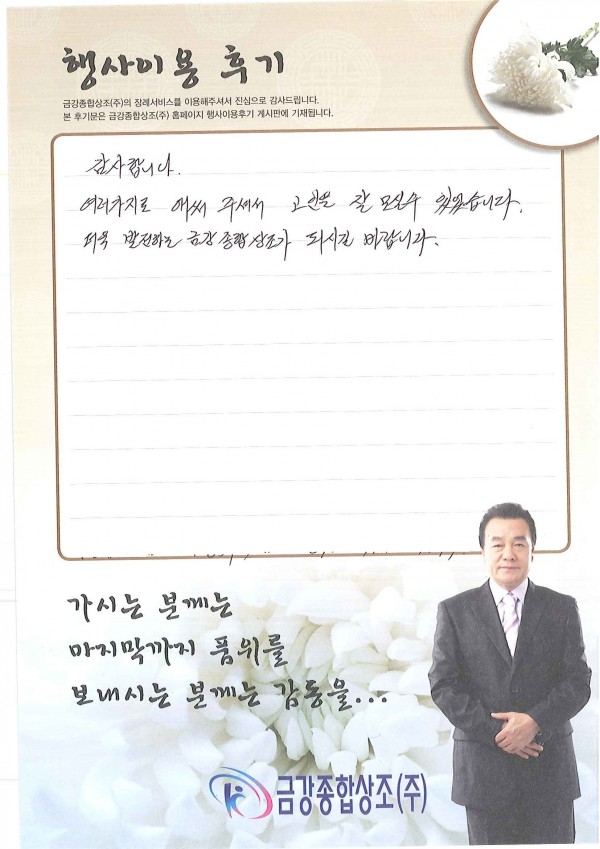 행사이용 후기
금강종합상조(주)의 장례서비스를 이용해주셔서 진심으로 감사드립니다.
본 후기문은 금강종합상조(주) 홈페이지 행사이용후기 게시판에 기재됩니다.
감사합니다.
여러가지로 애써 주셔서 고인을 잘 모실수 있었습니다.
더욱 발전하는 금강종합상조가 되시길 바랍니다.
가시는 분께는
마지막까지 품위를
보내시는 분께는 감동을...
금강종합상조(주)